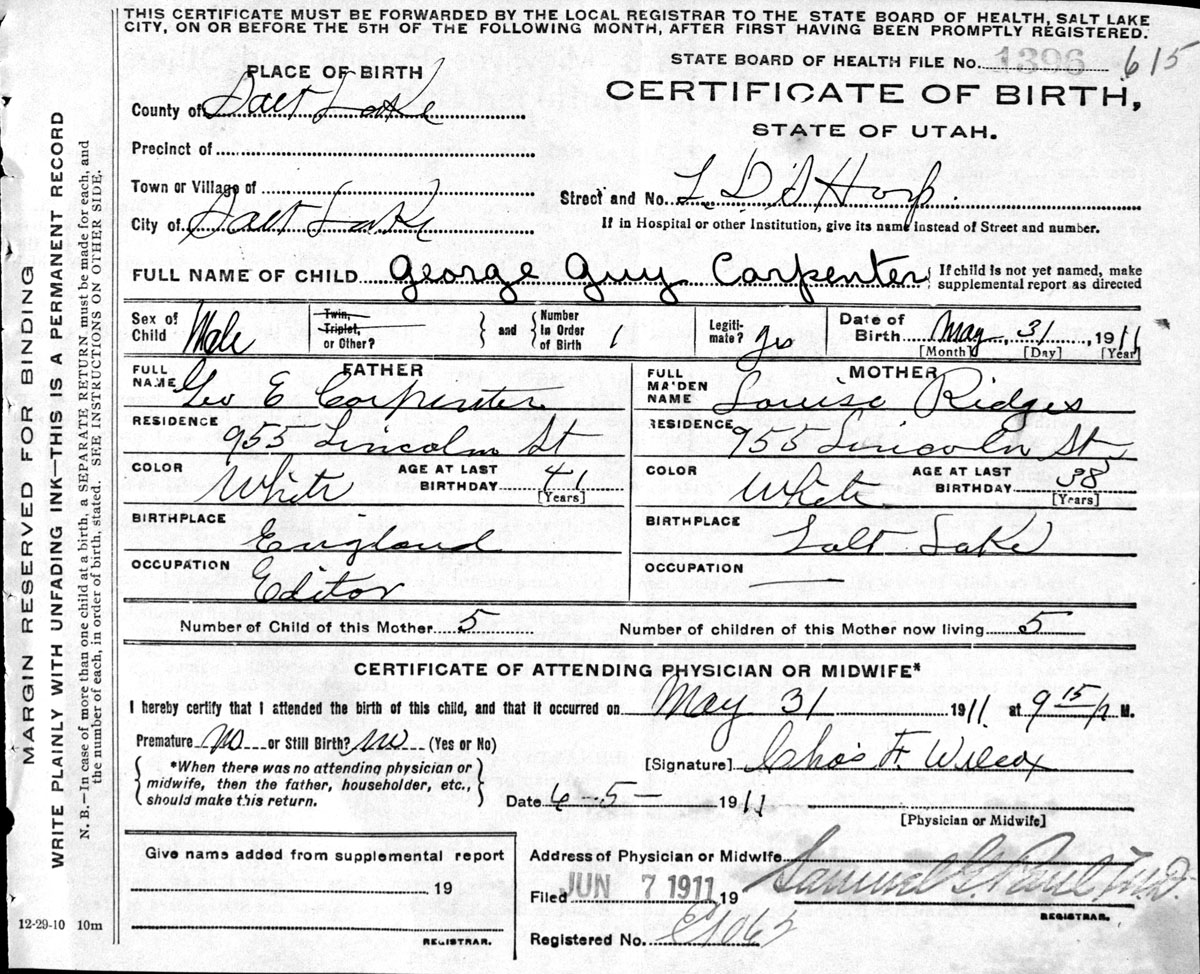 THIS CERTIFICATE MUST BE FORWARDED BY THE LOCAL REGISTRAR TO THE STATE BOARD OF HEALTH, SALT LAKE
CITY, ON OR BEFORE THE 5TH OF THE FOLLOWING MONTH, AFTER FIRST HAVING BEEN PROMPTLY REGISTERED.
STATE BOARD OF HEALTH FILE No. 1396 615
PLACE OF BIRTH
CERTIFICATE OF BIRTH,
County of Salt Lake
STATE OF UTAH.
Precinct of
Town or Village of
Street and No. L D S Hosp.
City of Salt Lake
If in Hospital or other Institution, give its name instead of Street and number.
FULL NAME OF CHILD George Guy Carpenter { If child is not yet named, make
supplemental report as directed
Sex of Child Male Twin, Triplet, or Other? } and { Number In Order of Birth 1 Legiti-mate? Yes Date of Birth May 31, 1911
[Month] [Day] [Year]
FATHER
FULL NAME Geo E Carpenter
RESIDENCE 955 Lincoln St
COLOR White AGE AT LAST BIRTHDAY 41 [Years]
BIRTHPLACE England
OCCUPATION Editor
MOTHER
FULL MAIDEN NAME Louise Ridges
RESIDENCE 955 Lincoln St
COLOR White AGE AT LAST BIRTHDAY 38 [Years]
BIRTHPLACE Salt Lake
OCCUPATION —
Number of Child of this Mother 5 Number of children of this Mother now living 5
CERTIFICATE OF ATTENDING PHYSICIAN OR MIDWIFE*
I hereby certify that I attended the birth of this child, and that it occurred on May 31 1911 at 9 15 P M.
Premature No or Still Birth? No (Yes or No)
[Signature] Chas F Wilcox
{ *When there was no attending physician or
midwife, then the father, householder, etc.,
should make this return. }
Date 6-5- 1911
[Physician or Midwife]
Give name added from supplemental report
19
REGISTRAR.
Address of Physician or Midwife
Filed JUN 7 1911 19 Samuel G. Paul M.D.
REGISTRAR.
Registered No.
12-29-10 10m
MARGIN RESERVED FOR BINDING
WRITE PLAINLY WITH UNFADING INK—THIS IS A PERMANENT RECORD
N. B.—In case of more than one child at a birth, a SEPARATE RETURN must be made for each, and
the number of each, in order of birth, stated. SEE INSTRUCTIONS ON OTHER SIDE.